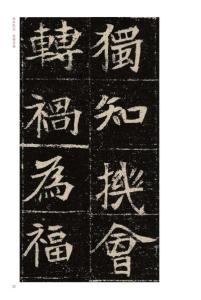 獨知機會
轉禍為福